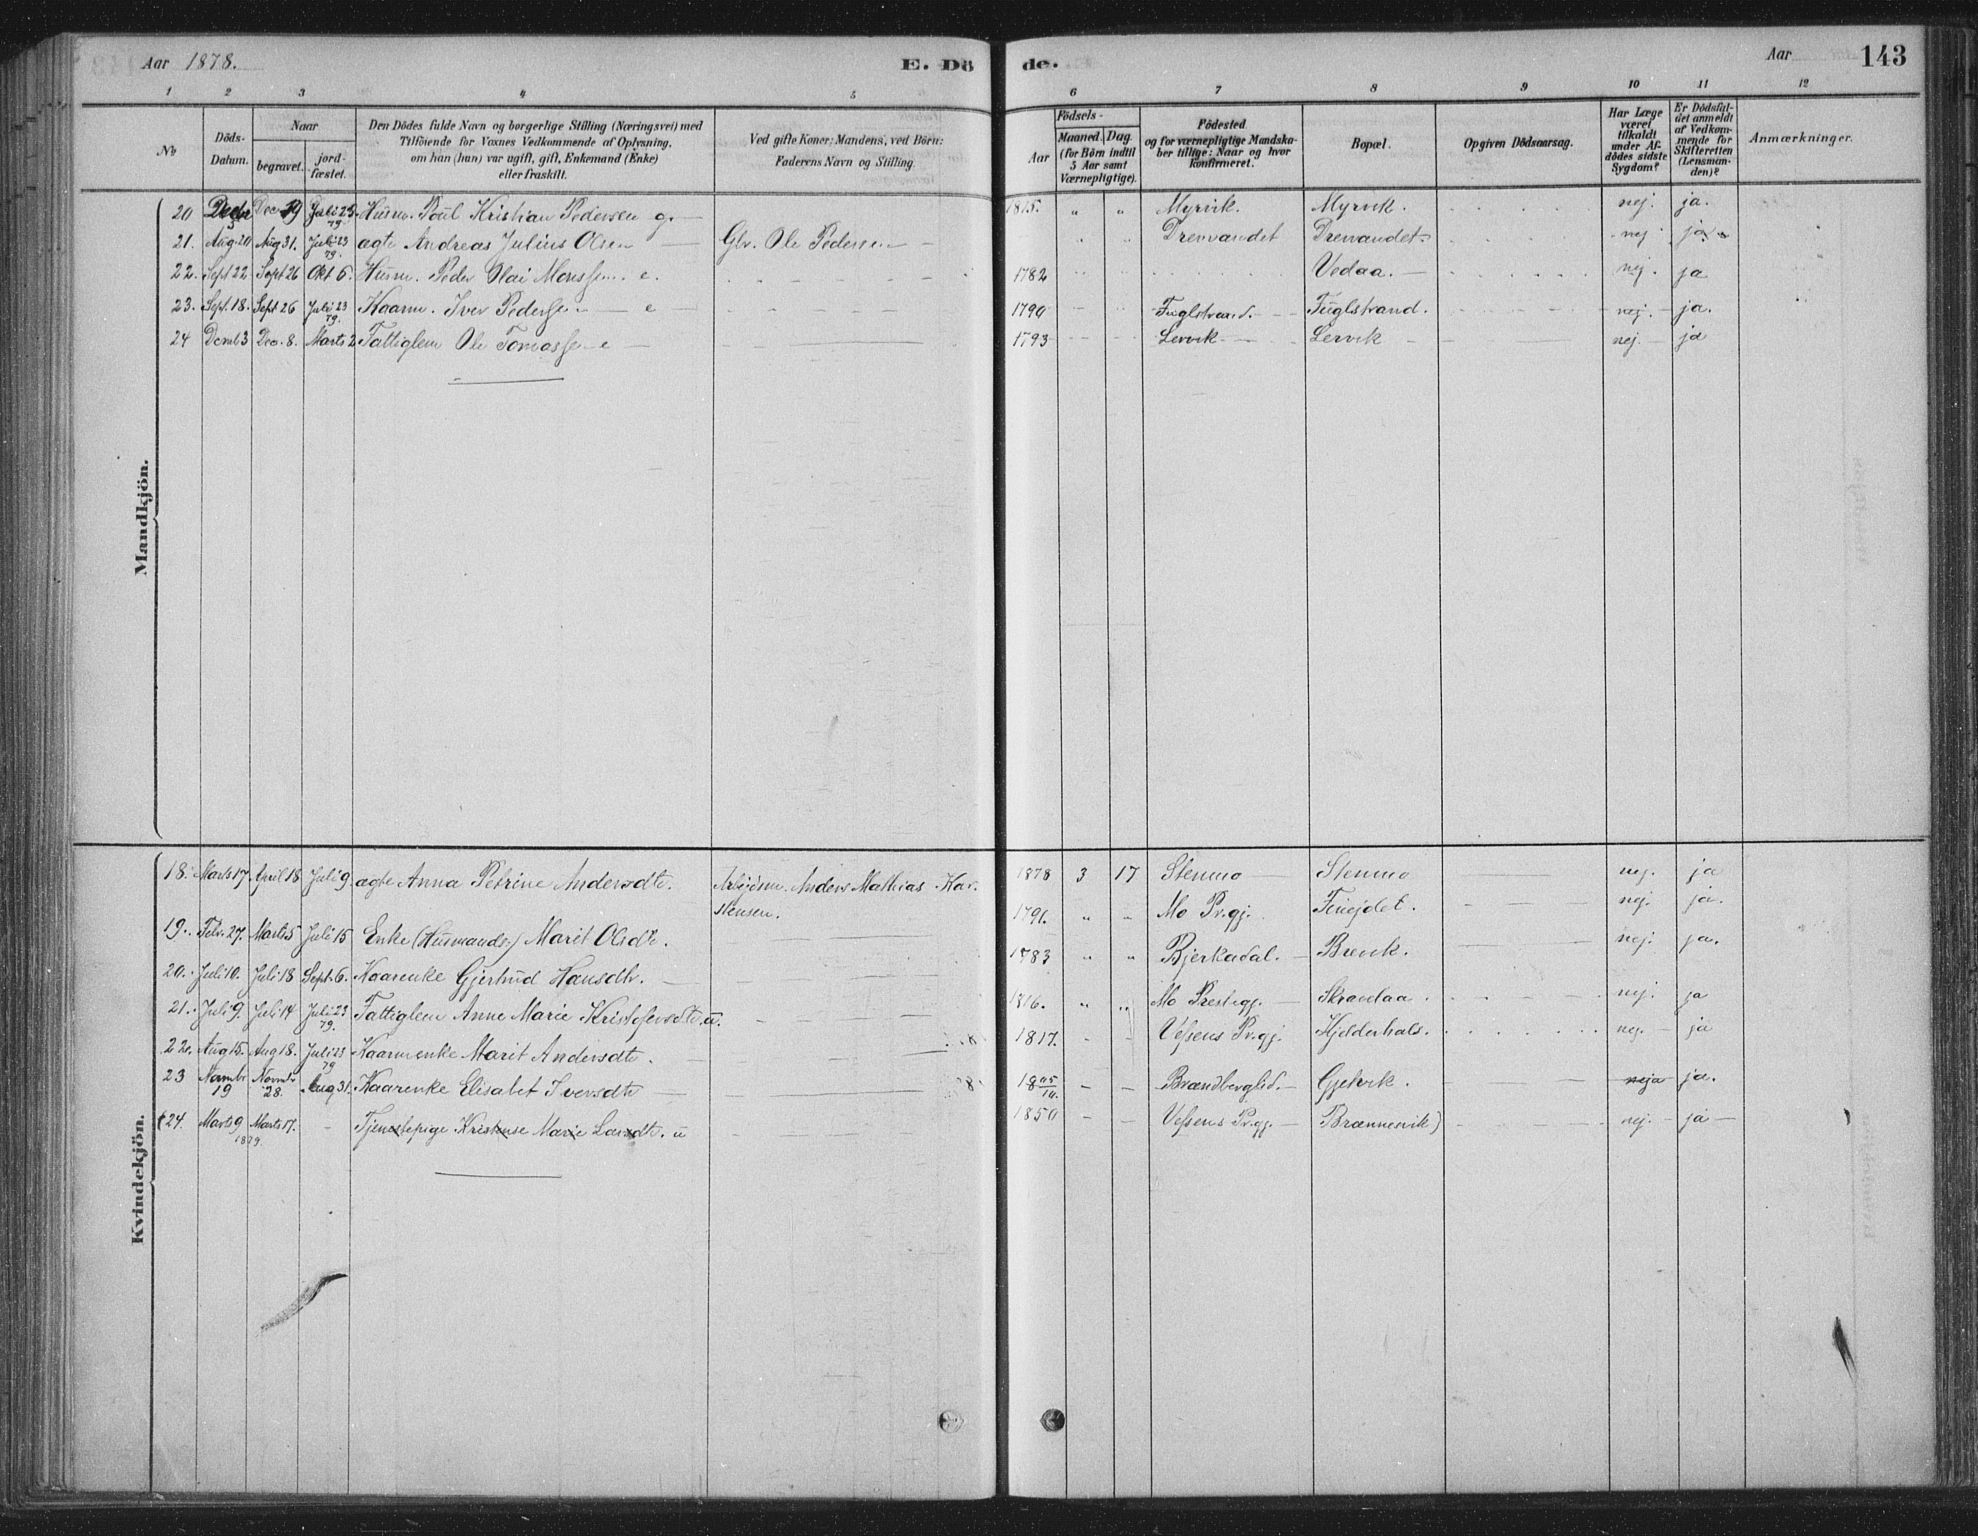 Aar 1878. E. Dö de. Aar 143
1 2 3 4 5 6 7 8 9 10 11 12
No
Döds-Datum.
Naar
begravet.
jord-fæstet.
Den Dödes fulde Navn og borgerlige Stilling (Næringsvei) med
Tilföiende for Voxnes Vedkommende af Oplysning,
om han (hun) var ugift, gift, Enkemand (Enke)
eller fraskilt.
Ved gifte Koner: Mandens, ved Börn:
Faderens Navn og Stilling.
Födsels-
Aar
Maaned. Dag.
(for Börn indtil
5 Aar samt
Værnepligtige).
Födested
og for værnepligtige Mandska-
ber tillige: Naar og hvor
konfirmeret.
Bopæl.
Opgiven Dödsaarsag.
Har Læge
været
tilkaldt
under Af-
dödes sidste
Sygdom?
Er Dödsfal-
det anmeldt
af Vedkom-
mende for
Skifteretten
(Lensman-
den)?
Anmærkninger.
Mandkjön.
20 Decbr 5 Dec 19 Juli 23. 79. Husm. Poul Kristian Pedersen g. 1815. " " Myrvik. Myrvik. nej. ja.
21. Aug 20 Aug 31. Juli 23 79. ægte Andreas Julius Olsen Gbr. Ole Pedersen " " Drevvandet Drevvandet nej ja
22. Sept 22 Sept 26 Okt 6. Husm. Peder Olai Monssen e. 1782 Vedaa. nej. ja
23. Sept. 18. Sept 26 Juli 23 79. Kaarm. Iver Pedersen e 1790 Fuglstrand. Fuglstrand. nej. ja.
24 Decmb 3 Dec. 8. Marts 2 Fattiglem Ole Tomassen e 1793 Lervik Lervik nej. ja
Kvindekjön.
18. Marts 17 April 18 Juli 9. ægte Anna Petrine Andersdtr. Arbejdsm. Anders Mathias Kar-
stensen. 1878 3 17 Stenmo Stenmo nej. ja
19. Febr. 27. Marts 5 Juli 15 Enke (Husmands-) Marit Olsdtr. 1791. " " Mo Pr.gj. nej. ja.
20. Juli 10. Juli 18 Sept. 6. Kaarenke Gjertrud Hansdtr. 1783 " " Bjerkadal. Brevik. nej. ja.
21. Juli 9. Juli 14 Juli 23 79. Fattiglem Anne Marie Kristofersdtr. u. 1816. " " Mo Prestegj. Skandaa. nej. ja
22. Aug 15. Aug 18. Juli 23 79 Kaarmenke Marit Andersdtr. 1817. Vefsens Pr.gj. Hjelderhals. nej. ja
23 Novmbr 19 Novmbr 28. Aug 31. Kaarenke Elisabet Iversdtr Brændberglid. Gjetvik. neja ja.
(24. Marts 9 Marts 17. 1879. Tjenestepige Kristense Marie Larsdtr. u 1850 Vefsens Pr.gj. Brænnesvik) nej. ja